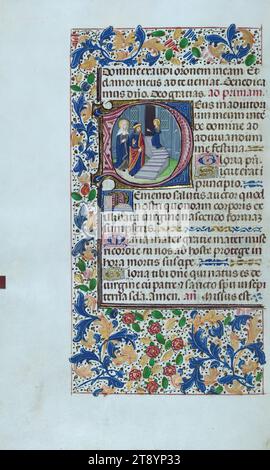 Domine exaudi orationem meam. Et
clamor meus ad te veniat. Benedica
mus dño. Deo gratias. ad primam.
Deus in adiutori
um meum inten
de domine ad
adiuvandum
me festina
Gloria pri
sicut erat i
principio.
Memento salutis auctor quod
nostri quondam corporis ex
illibata virgine nascendo formaz
sumpseris.
Maria mater gratie mater mise
ricordie tu nos ab hoste protege et in
hora mortis suscipe.
Gloria tibi dñe qui natus es de
virgine cum patre et sancto spũ in sempi
terna scĩa. Amen. añ Missus est.
alamy
Image ID: 2T8YP33
www.alamy.com